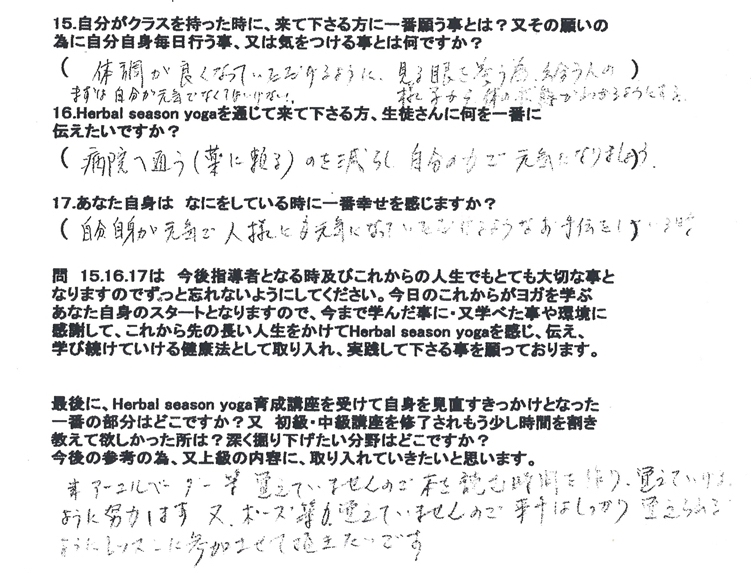 15.自分がクラスを持った時に、来て下さる方に一番願う事とは？又その願いの
為に自分自身毎日行う事、又は気をつける事とは何ですか？
( 体調が良くなっていただけるように、見る眼を養う為、 )
まずは自分が元気でなくてはいけない。 様子から体の状態がわかるようにする
16.Herbal season yogaを通じて来て下さる方、生徒さんに何を一番に
伝えたいですか？
( 病院へ通う(薬に頼る)のを減らし 自分の力で 元気になりましょう。
17.あなた自身は なにをしている時に一番幸せを感じますか？
( 自分自身が元気で 人様にも元気になっていただけるようなお手伝をしている時
問 15.16.17は 今後指導者となる時及びこれからの人生でもとても大切な事と
なりますのでずっと忘れないようにしてください。今日のこれからがヨガを学ぶ
あなた自身のスタートとなりますので、今まで学んだ事に・又学べた事や環境に
感謝して、これから先の長い人生をかけてHerbal season yogaを感じ、伝え、
学び続けていける健康法として取り入れ、実践して下さる事を願っております。
最後に、Herbal season yoga育成講座を受けて自身を見直すきっかけとなった
一番の部分はどこですか？又 初級・中級講座を修了されもう少し時間を割き
教えて欲しかった所は？深く掘り下げたい分野はどこですか？
今後の参考の為、又上級の内容に、取り入れていきたいと思います。
アーユルベーダー 覚えていませんので 本を読む時間を作り、覚えていける
ように努力します 又、ポーズ等も覚えていませんので しっかり 覚えられる
ようにレッスンに参加させて頂きたいです